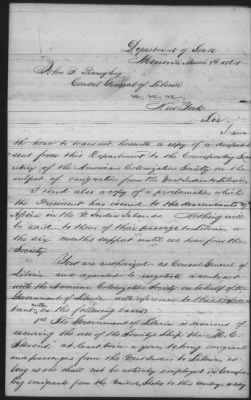 Department of State
Monrovia March 8th 1864
John B. Pinney
Consul General of Liberia
New York
Sir
I have
the honor to transmit herewith a copy of a despatch
sent from this Department to the Corresponding Secre-
tary of the American Colonization Society on the
subject of emigration from the West Indies to Liberia.
I send also a copy of a proclamation which
the President has issued to the descendants of
Africa in the W. India Islands. Nothing will
be said to them of their passage to Liberia or
the six months support until we hear from the
Society.
You are authorized as Consul General of
Liberia and agent to negotiate a contract
with the American Colonization Society on behalf of the
Government of Liberia with reference to this
matter on the following basis:
1st The Government of Liberia is desirous of
securing the use of the Society's Ship the "M. C.
Stevens" at least twice a year to bring emigrants
and passengers from the West Indies to Liberia, so
long as she shall not be actively employed in transfer-
ring emigrants from the United States to this